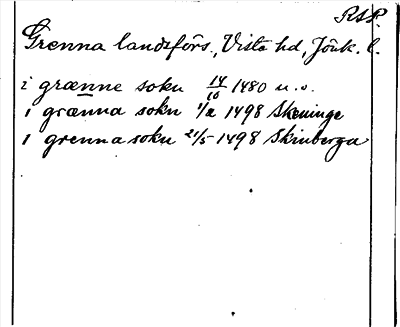 RAP.
Grenna landsförs., Vista hd, Jönk. l.
i grænne sokn 14/10 1480 u.s.
i grænna sokn 1/2 1498 Skeninge
i grenna sokn 21/5 1498 Skinberga